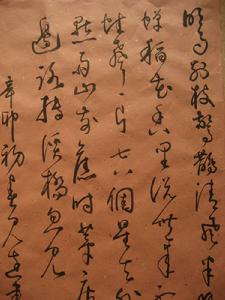 明月别枝驚鵲清風半
蟬稻花香里説豐年
蛙聲一片七八個星天外
點雨山前舊時茅店
邊路轉溪橋忽見
辛卯初